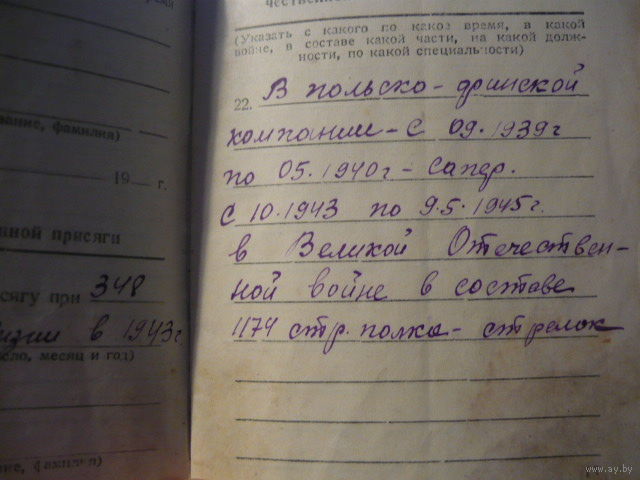 время
вание, фамилия)
19 г.
нной присяги
сягу при 348
изии в 1943г.
сло, месяц и год)
ие, фамилия)
чественной
(Указать с какого по какое время, в какой
войне, в составе какой части, на какой долж-
ности, по какой специальности)
22. В польско-финской
компании - с 09.1939г
по 05.1940г - сапер.
С 10.1943 по 9.5.1945г.
в Великой Отечествен-
ной войне в составе
1174 стр. полка - стрелок
www.ay.by